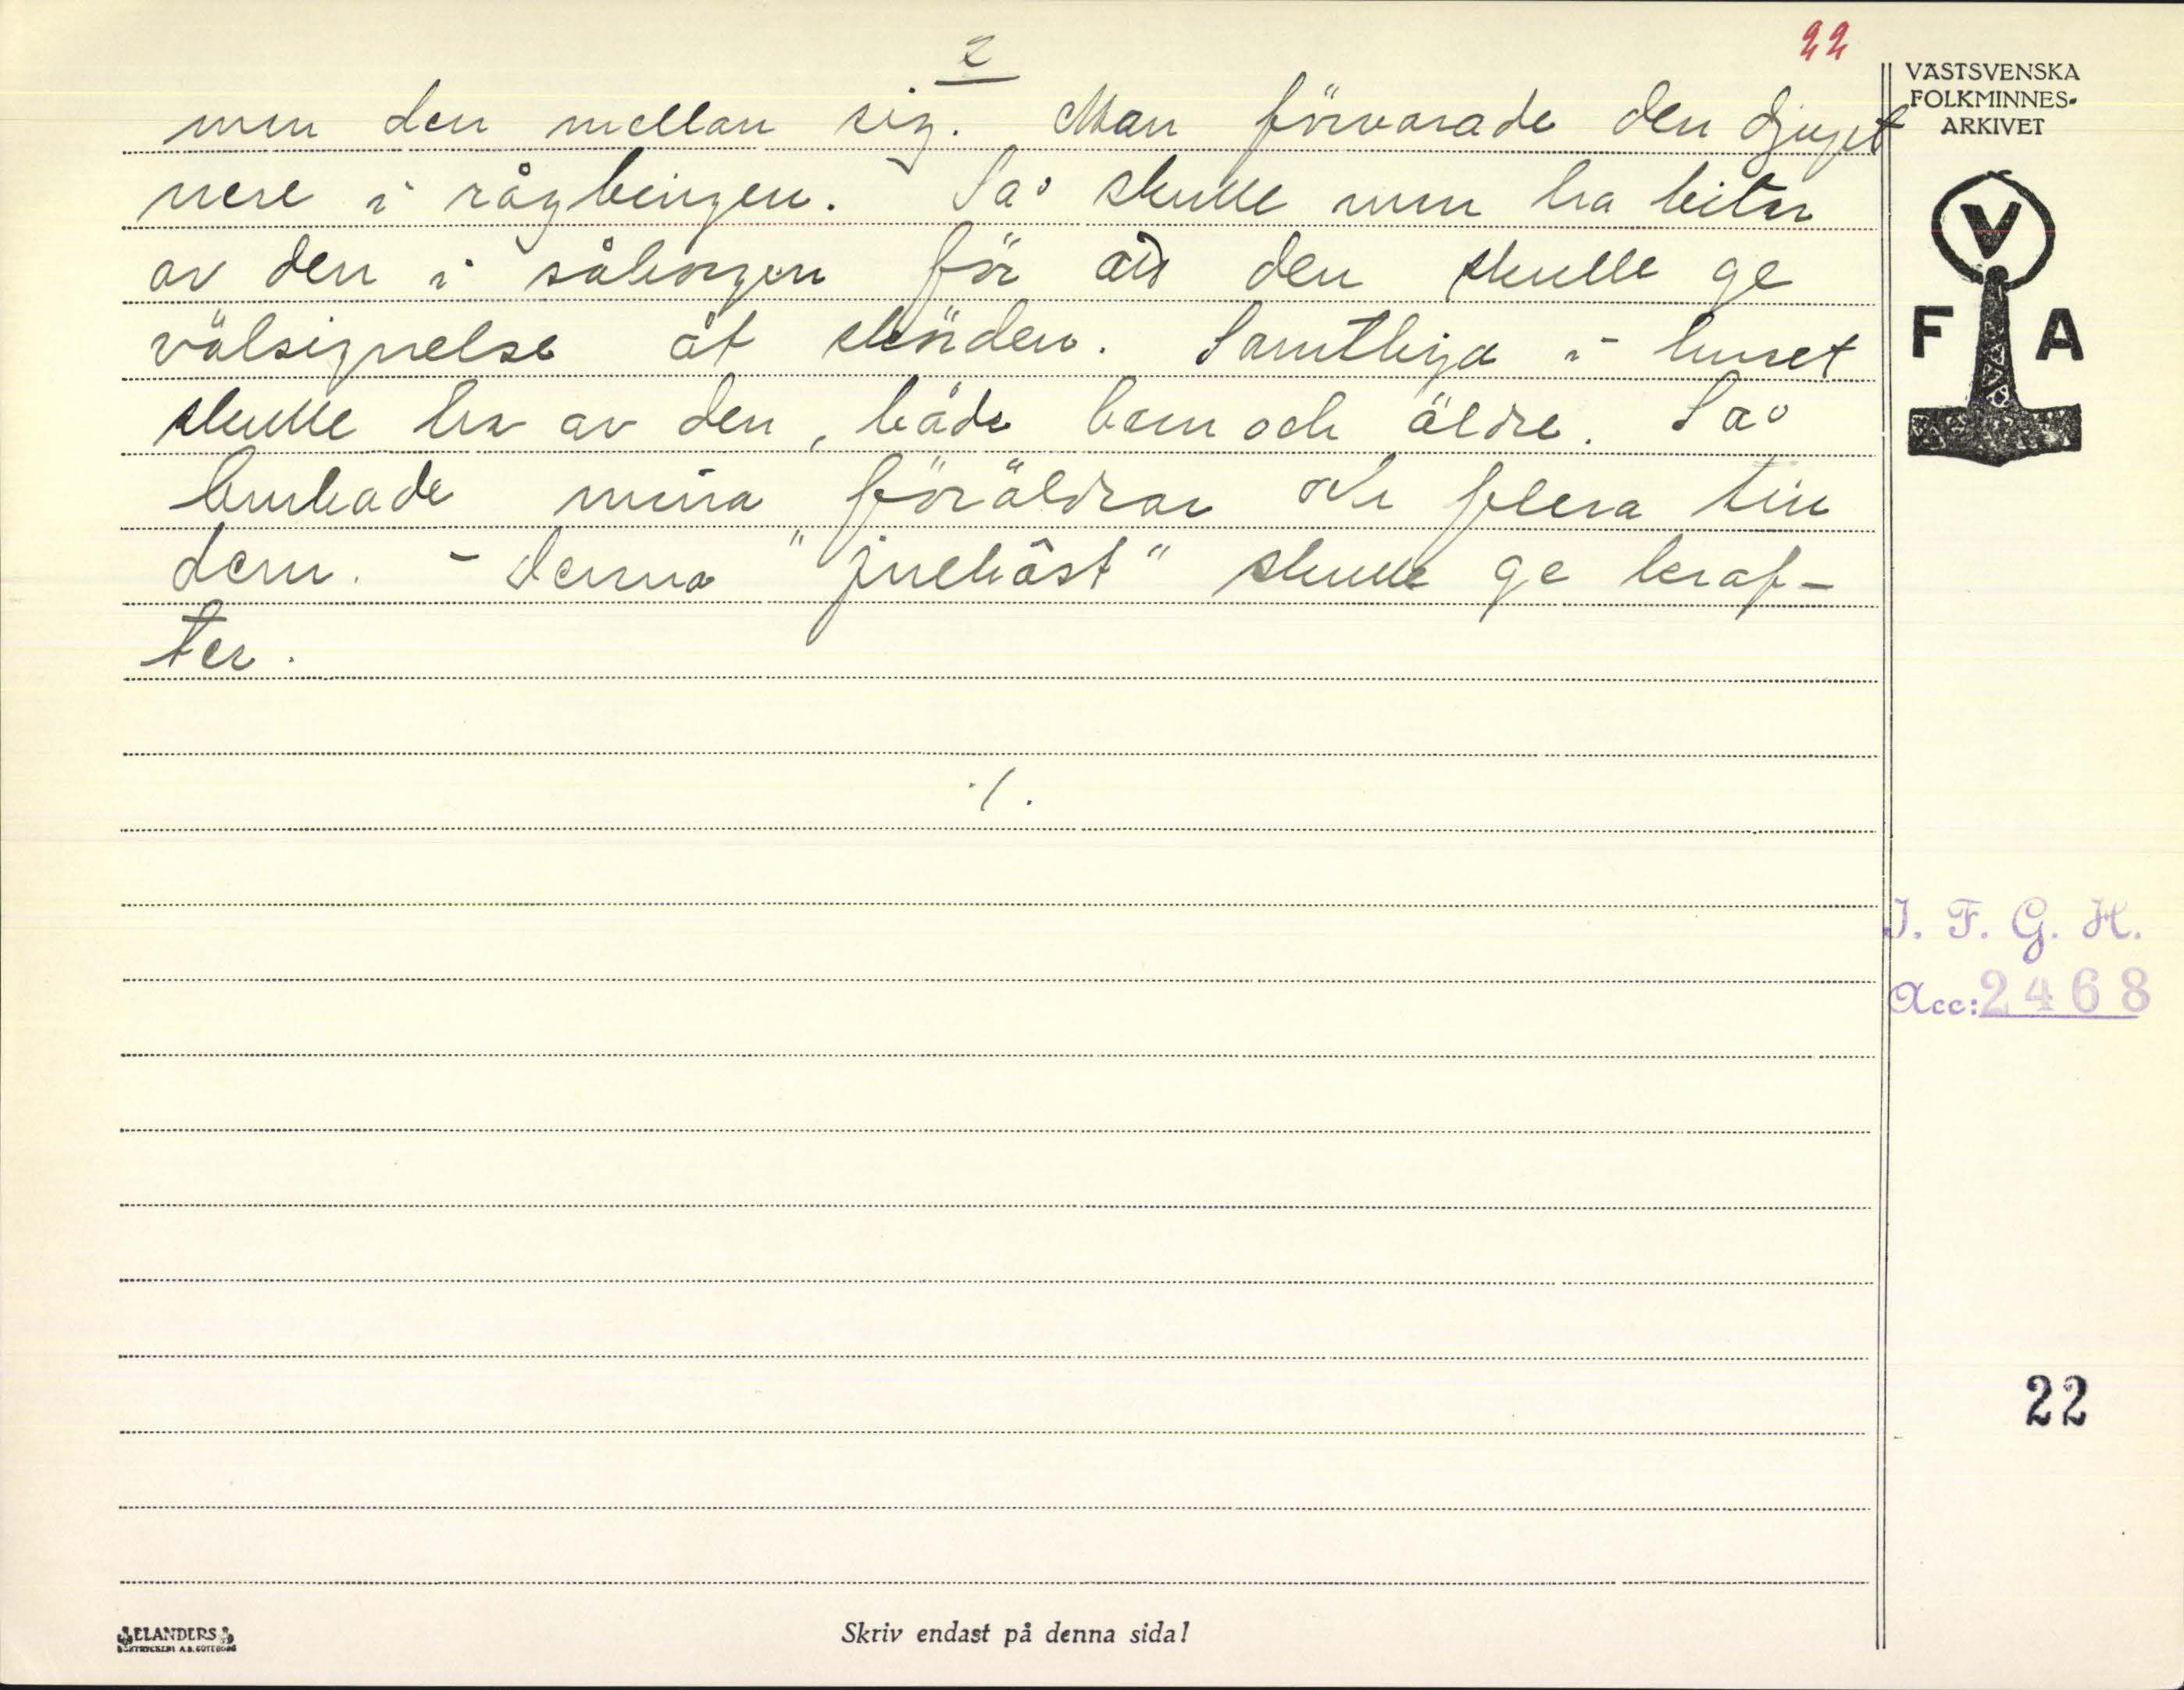 2
22
men den mellan sig. Man förvarade den djupt
nere i rågbingen. Så skulle man ha bitar
av den i såkorgen för att den skulle ge
välsignelse åt skörden. Samtliga i huset
skulle ha av den, både barn och äldre. Så
brukade mina föräldrar och flera till
dem. - Denna "juleost" skulle ge kraf-
ter.
./.
VÄSTSVENSKA
FOLKMINNES-
ARKIVET
V
F A
I. F. G. H.
Acc: 2468
22
ELANDERS
BOKTRYCKERI A.B. GÖTEBORG
Skriv endast på denna sida!